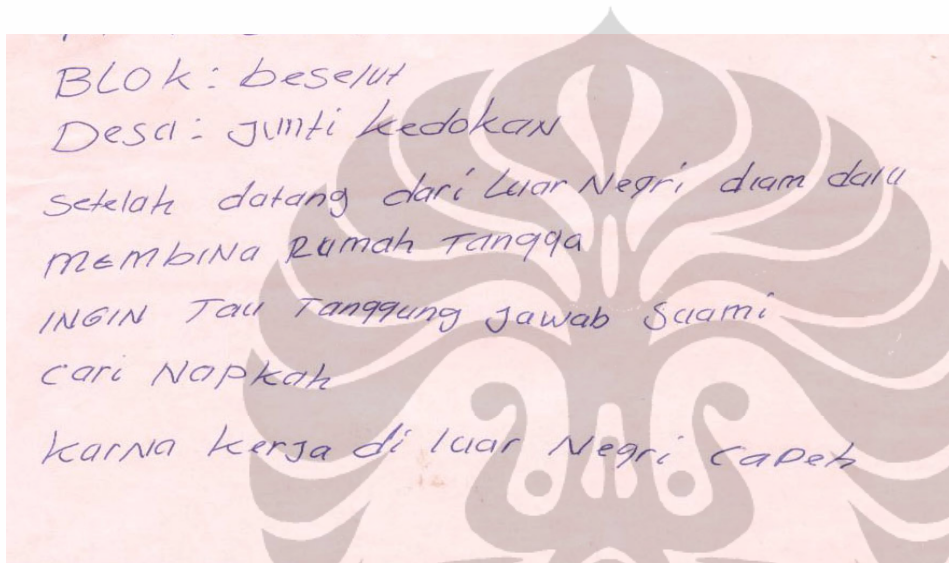 BLOK: beselut
Desa: junti kedokan
setelah datang dari Luar Negri diam dalu
membina Rumah Tangga
INGIN Tau Tanggung Jawab Suami
cari Napkah
karna kerja di luar Negri capeh